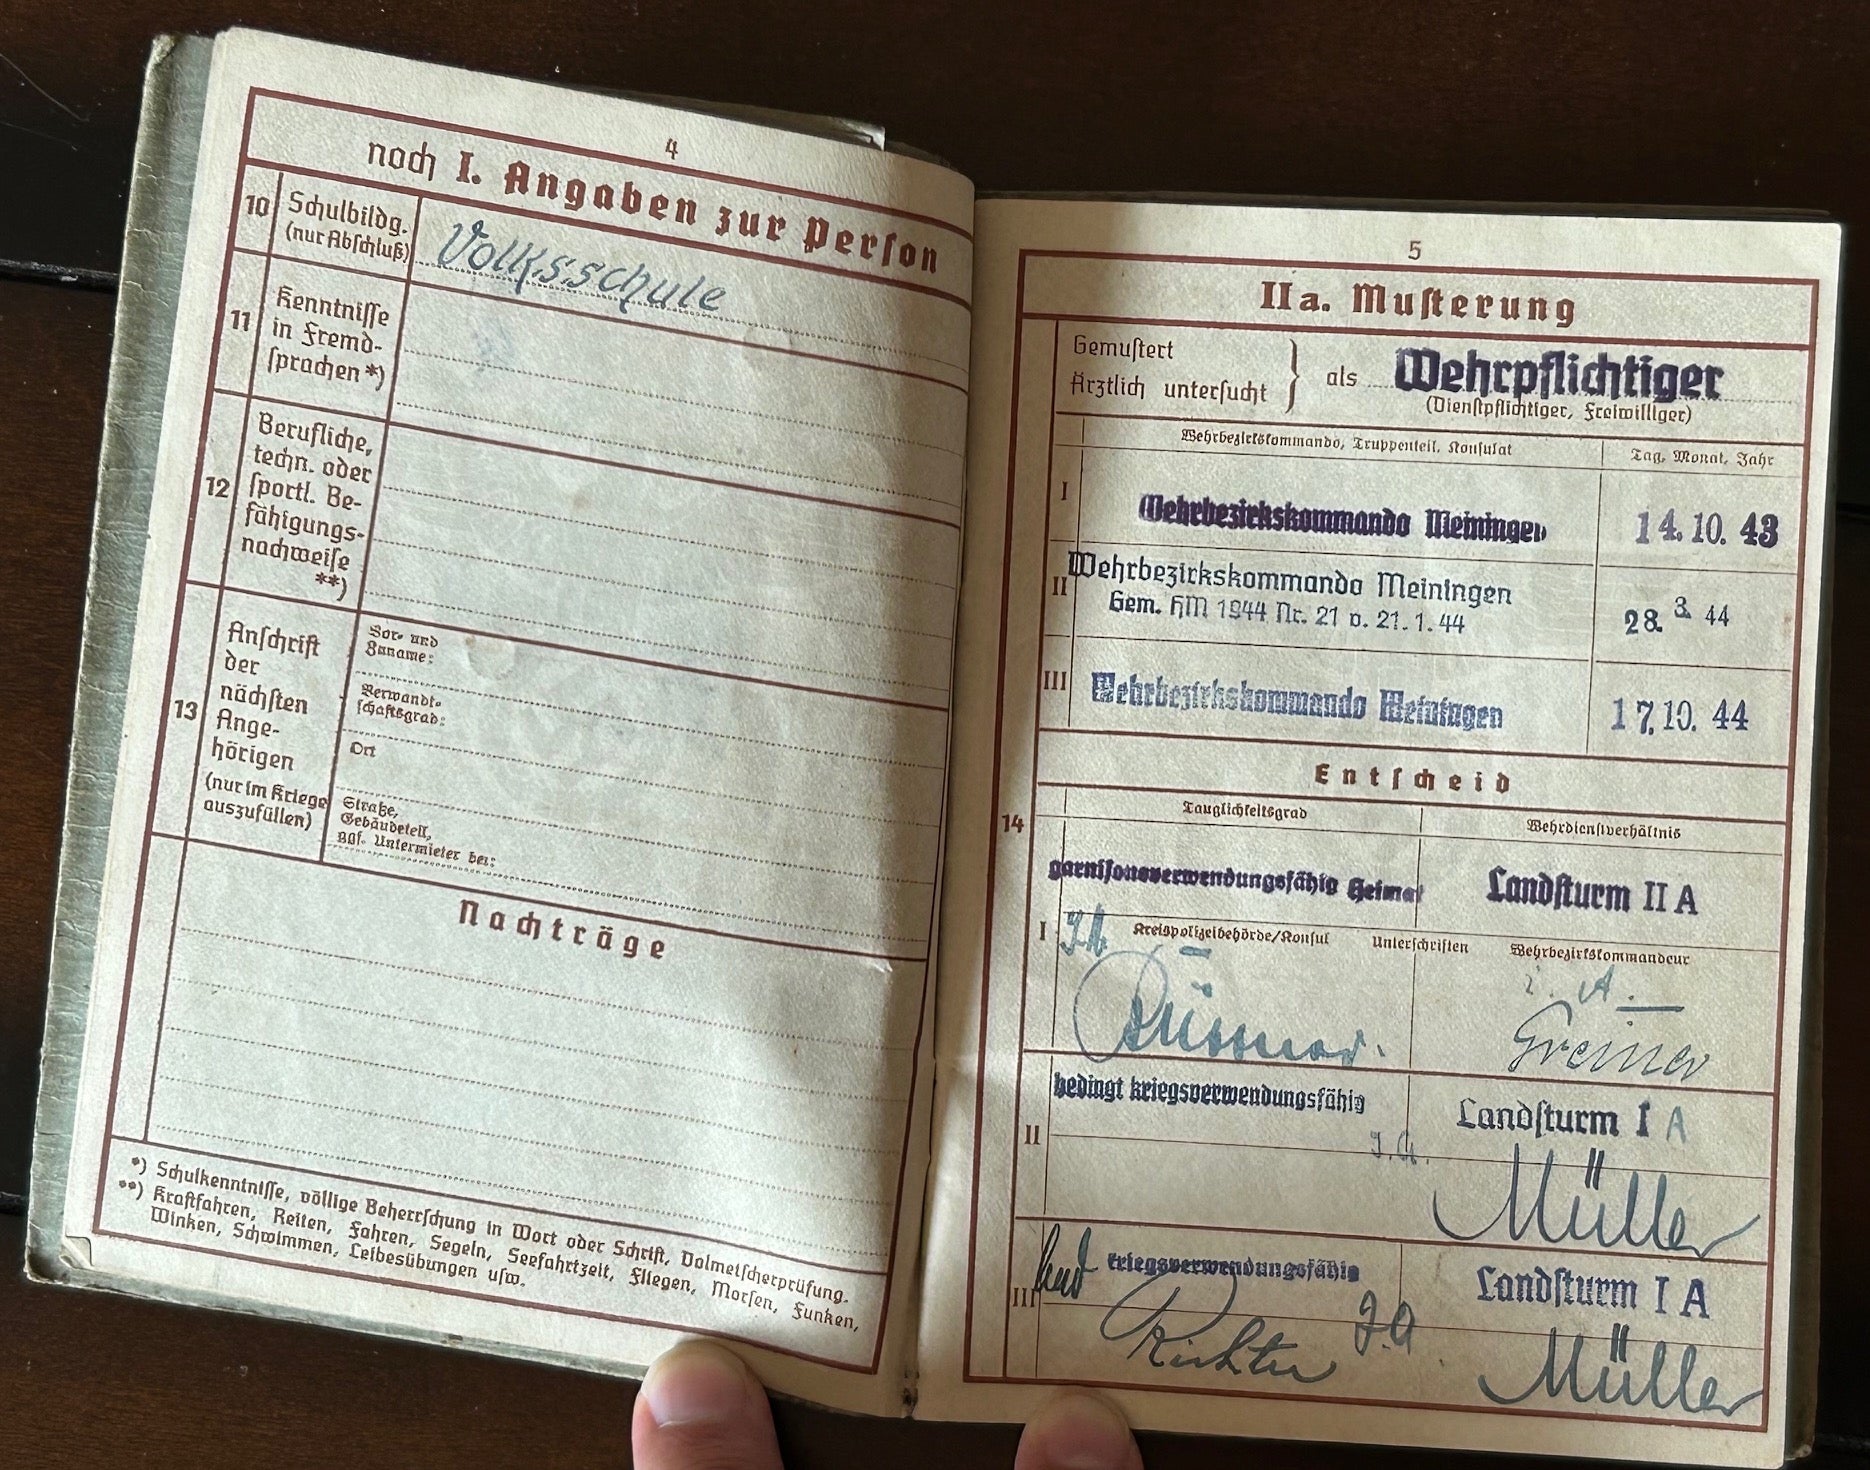 4
noch I. Angaben zur Person
10
Schulbildg.
(nur Abschluß)
Volksschule
11
Kenntnisse
in Fremd-
sprachen *)
12
Berufliche,
techn. oder
sportl. Be-
fähigungs-
nachweise
**)
13
Anschrift
der
nächsten
Ange-
hörigen
(nur im Kriege
auszufüllen)
Vor- und
Zuname:
Verwandt-
schaftsgrad:
Ort
Straße,
Gebäudeteil,
ggf. Untermieter bei:
Nachträge
*) Schulkenntnisse, völlige Beherrschung in Wort oder Schrift, Dolmetscherprüfung.
**) Kraftfahren, Reiten, Fahren, Segeln, Seefahrtzeit, Fliegen, Morsen, Funken,
Winken, Schwimmen, Leibesübungen usw.
5
IIa. Musterung
Gemustert
Ärztlich untersucht
als Wehrpflichtiger
(Dienstpflichtiger, Freiwilliger)
Wehrbezirkskommando, Truppenteil, Konsulat
Tag, Monat, Jahr
I
Wehrbezirkskommando Meiningen
14.10.43
II
Wehrbezirkskommando Meiningen
Gem. HM 1944 Nr. 21 v. 21.1.44
28.3.44
III
Wehrbezirkskommando Meiningen
17.10.44
Entscheid
14
Tauglichkeitsgrad
Wehrdienstverhältnis
garnisonsverwendungsfähig Heimat
Landsturm II A
I
Kreispolizeibehörde/Konsul
Unterschriften
Wehrbezirkskommandeur
i. A.
Greiner
bedingt kriegsverwendungsfähig
Landsturm I A
II
J.A.
Müller
bed kriegsverwendungsfähig
Landsturm I A
III
Richter
J.A
Müller